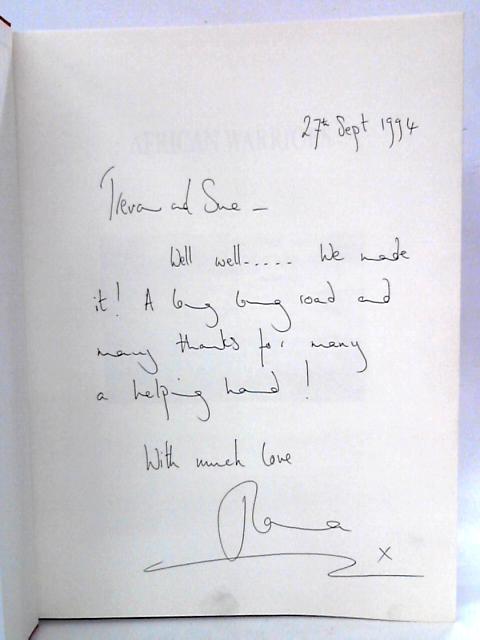 27th Sept 1994
AFRICAN WARRIORS
Trevor and Sue –
Well well..... We made
it! A long long road and
many thanks for many
a helping hand!
With much love
x